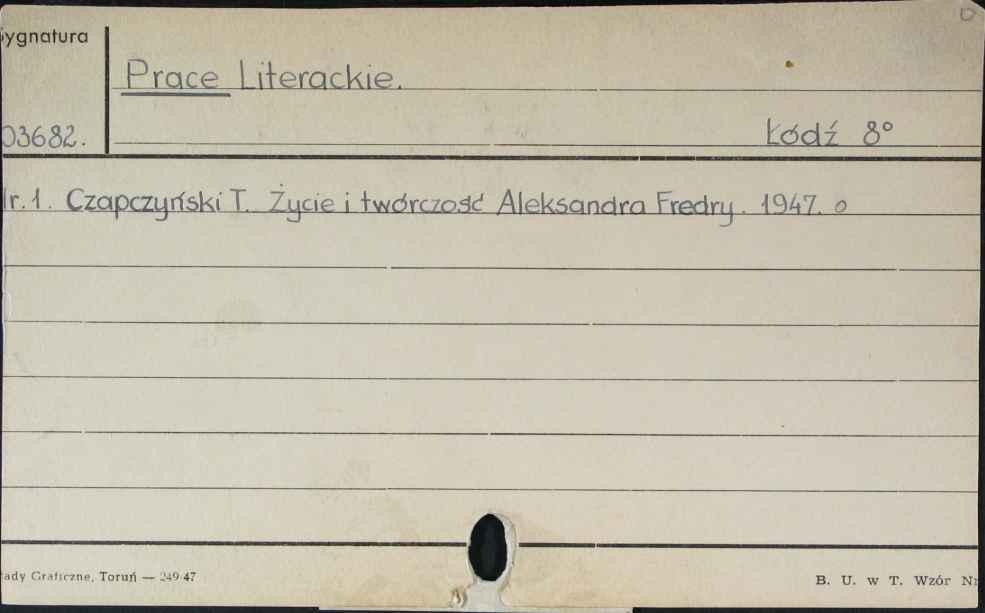 ygnatura
Prace Literackie.
03682.
Łódź 8°
Nr. 1. Czapczyński T. Życie i twórczość Aleksandra Fredry. 1947. o
ady Graficzne, Toruń — 249/47
B. U. w T. Wzór Nr